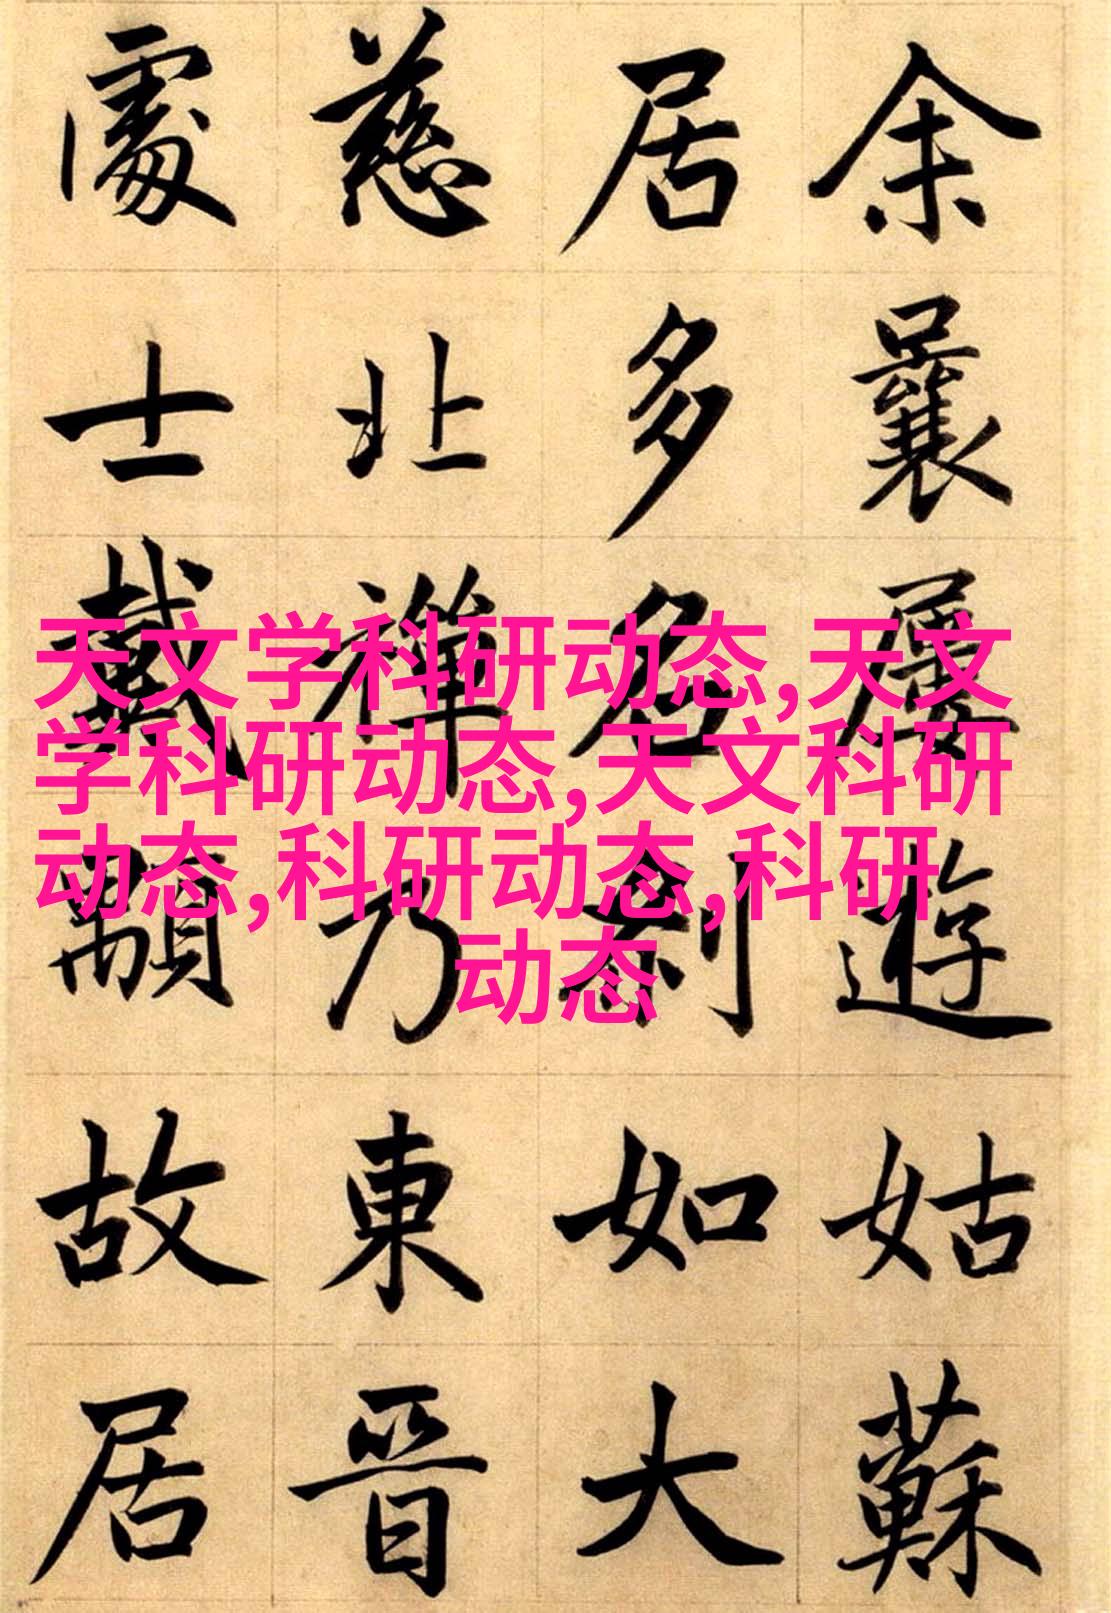 余曩屢遊姑蘇
居多名刹如大
慈北禪乃東晉
處士戴顒故居
天文学科研动态,天文
学科研动态,天文科研
动态,科研动态,科研
动态